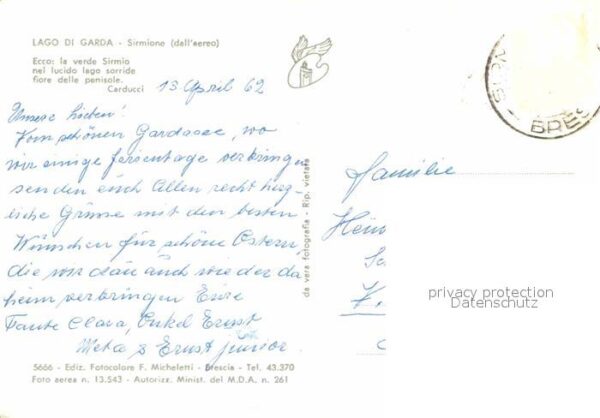 LAGO DI GARDA - Sirmione (dall'aereo)
Ecco: la verde Sirmio
nel lucido lago sorride
fiore delle penisole.
Carducci
13. April 62
Unsere Lieben!
Vom schönen Gardasee, wo
wir einige Ferientage verbringen
senden euch Allen recht herz-
liche Grüsse mit den besten
Wünschen für schöne Ostern
die wir dan auch wieder da
heim verbringen Eure
Tante Clara, Onkel Ernst
Meta & Ernst junior.
5666 - Ediz. Fotocolore F. Micheletti - Brescia - Tel. 43.370
Foto aerea n. 13.543 - Autorizz. Minist. del M.D.A. n. 261
da vera fotografia - Rip. vietata
BRES
Familie
privacy protection
Datenschutz